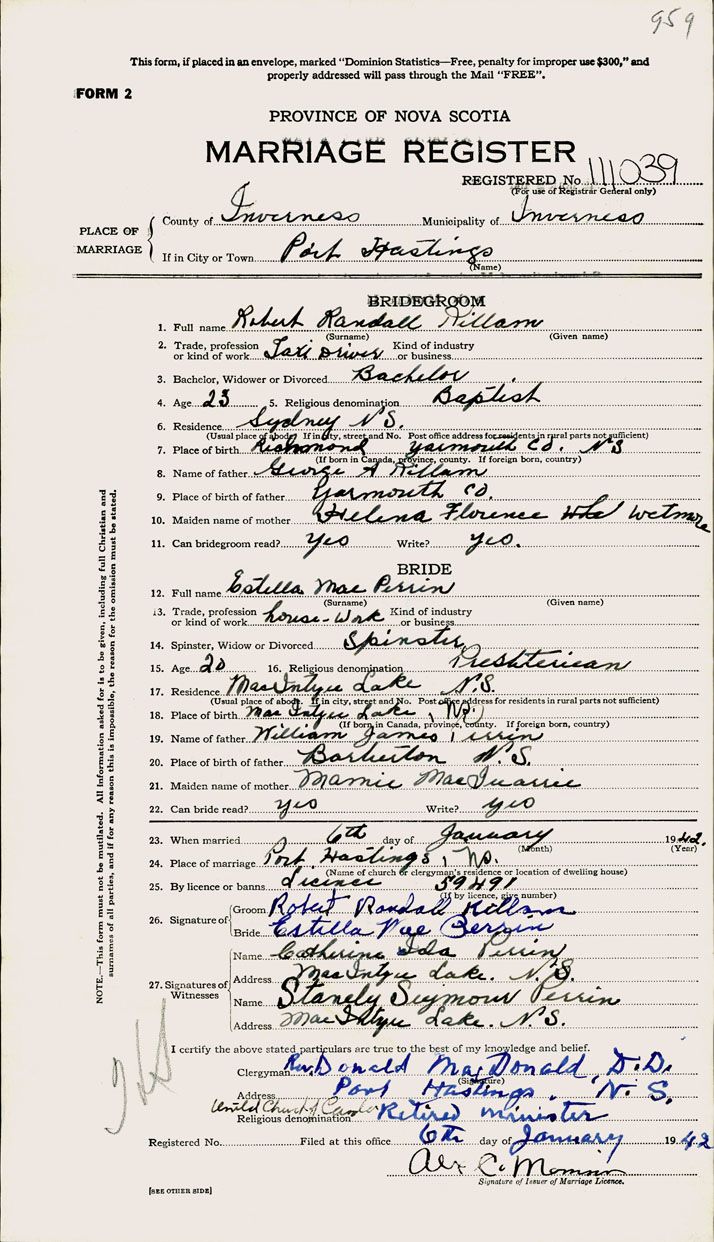 959
This form, if placed in an envelope, marked "Dominion Statistics—Free, penalty for improper use $300," and
properly addressed will pass through the Mail "FREE".
FORM 2
PROVINCE OF NOVA SCOTIA
MARRIAGE REGISTER
REGISTERED No. 111039
(For use of Registrar General only)
PLACE OF MARRIAGE
County of Inverness Municipality of Inverness
If in City or Town Port Hastings
(Name)
BRIDEGROOM
1. Full name Robert Randall Killam
(Surname) (Given name)
2. Trade, profession or kind of work Taxi Driver Kind of industry or business
3. Bachelor, Widower or Divorced Bachelor
4. Age 23 5. Religious denomination Baptist
6. Residence Sydney N.S.
(Usual place of abode) If in city, street and No. Post office address for residents in rural parts not sufficient)
7. Place of birth Richmond Yarmouth Co. N S
(If born in Canada, province, county. If foreign born, country)
8. Name of father George A Killam
9. Place of birth of father Yarmouth Co.
10. Maiden name of mother Helena Florence Wetmore
11. Can bridegroom read? yes Write? yes.
BRIDE
12. Full name Estella Mae Perrin
(Surname) (Given name)
13. Trade, profession or kind of work house-work Kind of industry or business
14. Spinster, Widow or Divorced Spinster
15. Age 20 16. Religious denomination Presbterican
17. Residence MacIntyre Lake N.S.
(Usual place of abode. If in city, street and No. Post office address for residents in rural parts not sufficient)
18. Place of birth MacIntyre Lake, N.S.
(If born in Canada, province, county. If foreign born, country)
19. Name of father William James Perrin
20. Place of birth of father Barberton N.S.
21. Maiden name of mother Mamie MacQuarrie
22. Can bride read? yes Write? yes
23. When married 6th day of January 1942.
(Month) (Year)
24. Place of marriage Port Hastings, N.S.
(Name of church or clergyman's residence or location of dwelling house)
25. By licence or banns Licence 59491
(If by licence, give number)
26. Signature of Groom Robert Randall Killam
Bride Estella Mae Perrin
27. Signatures of Witnesses
Name Catherine Ida Perrin
Address MacIntyre Lake. N.S.
Name Stanely Seymour Perrin
Address MacIntyre Lake. N.S.
I certify the above stated particulars are true to the best of my knowledge and belief.
Clergyman Rev. Donald MacDonald, D.D.
(Signature)
Address Port Hastings, N.S.
United Church of Canada
Religious denomination Retired minister
Registered No. Filed at this office 6th day of January 1942
Alex C.
Signature of Issuer of Marriage Licence.
[SEE OTHER SIDE]
NOTE.—This form must not be mutilated. All information asked for is to be given, including full Christian and
surnames of all parties, and if for any reason this is impossible, the reason for the omission must be stated.